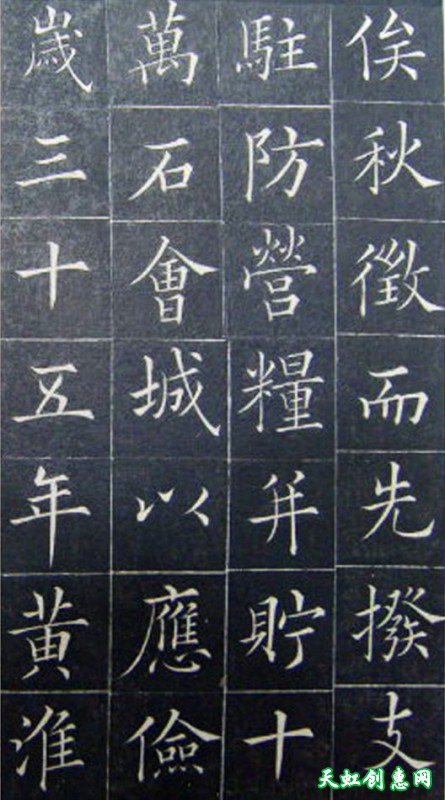 俟秋徵而先撥支
駐防營糧并貯十
萬石會城以應儉
歲三十五年黄淮
天虹创惠网